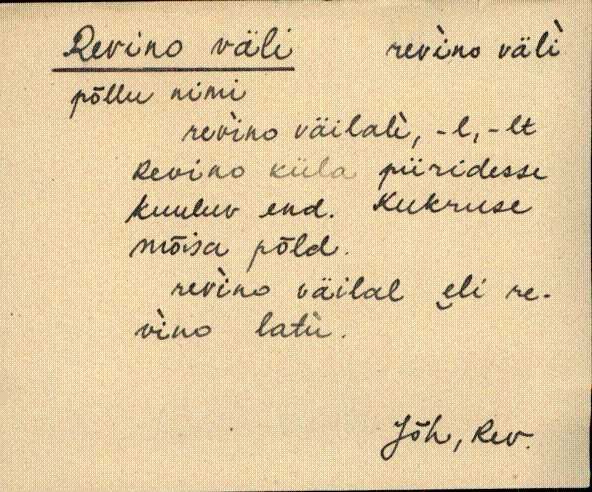 Revino väli revìno välì
põllu nimi
revìno väilalè, -l, -lt
Revino küla piiridesse
kuuluv end. Kukruse
mõisa põld.
revìno väilal e̮li re-
vìno latù.
Jõh, Rev.